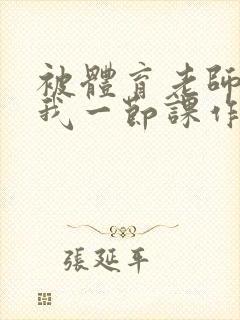 被體育老師
我一節課作
張延平